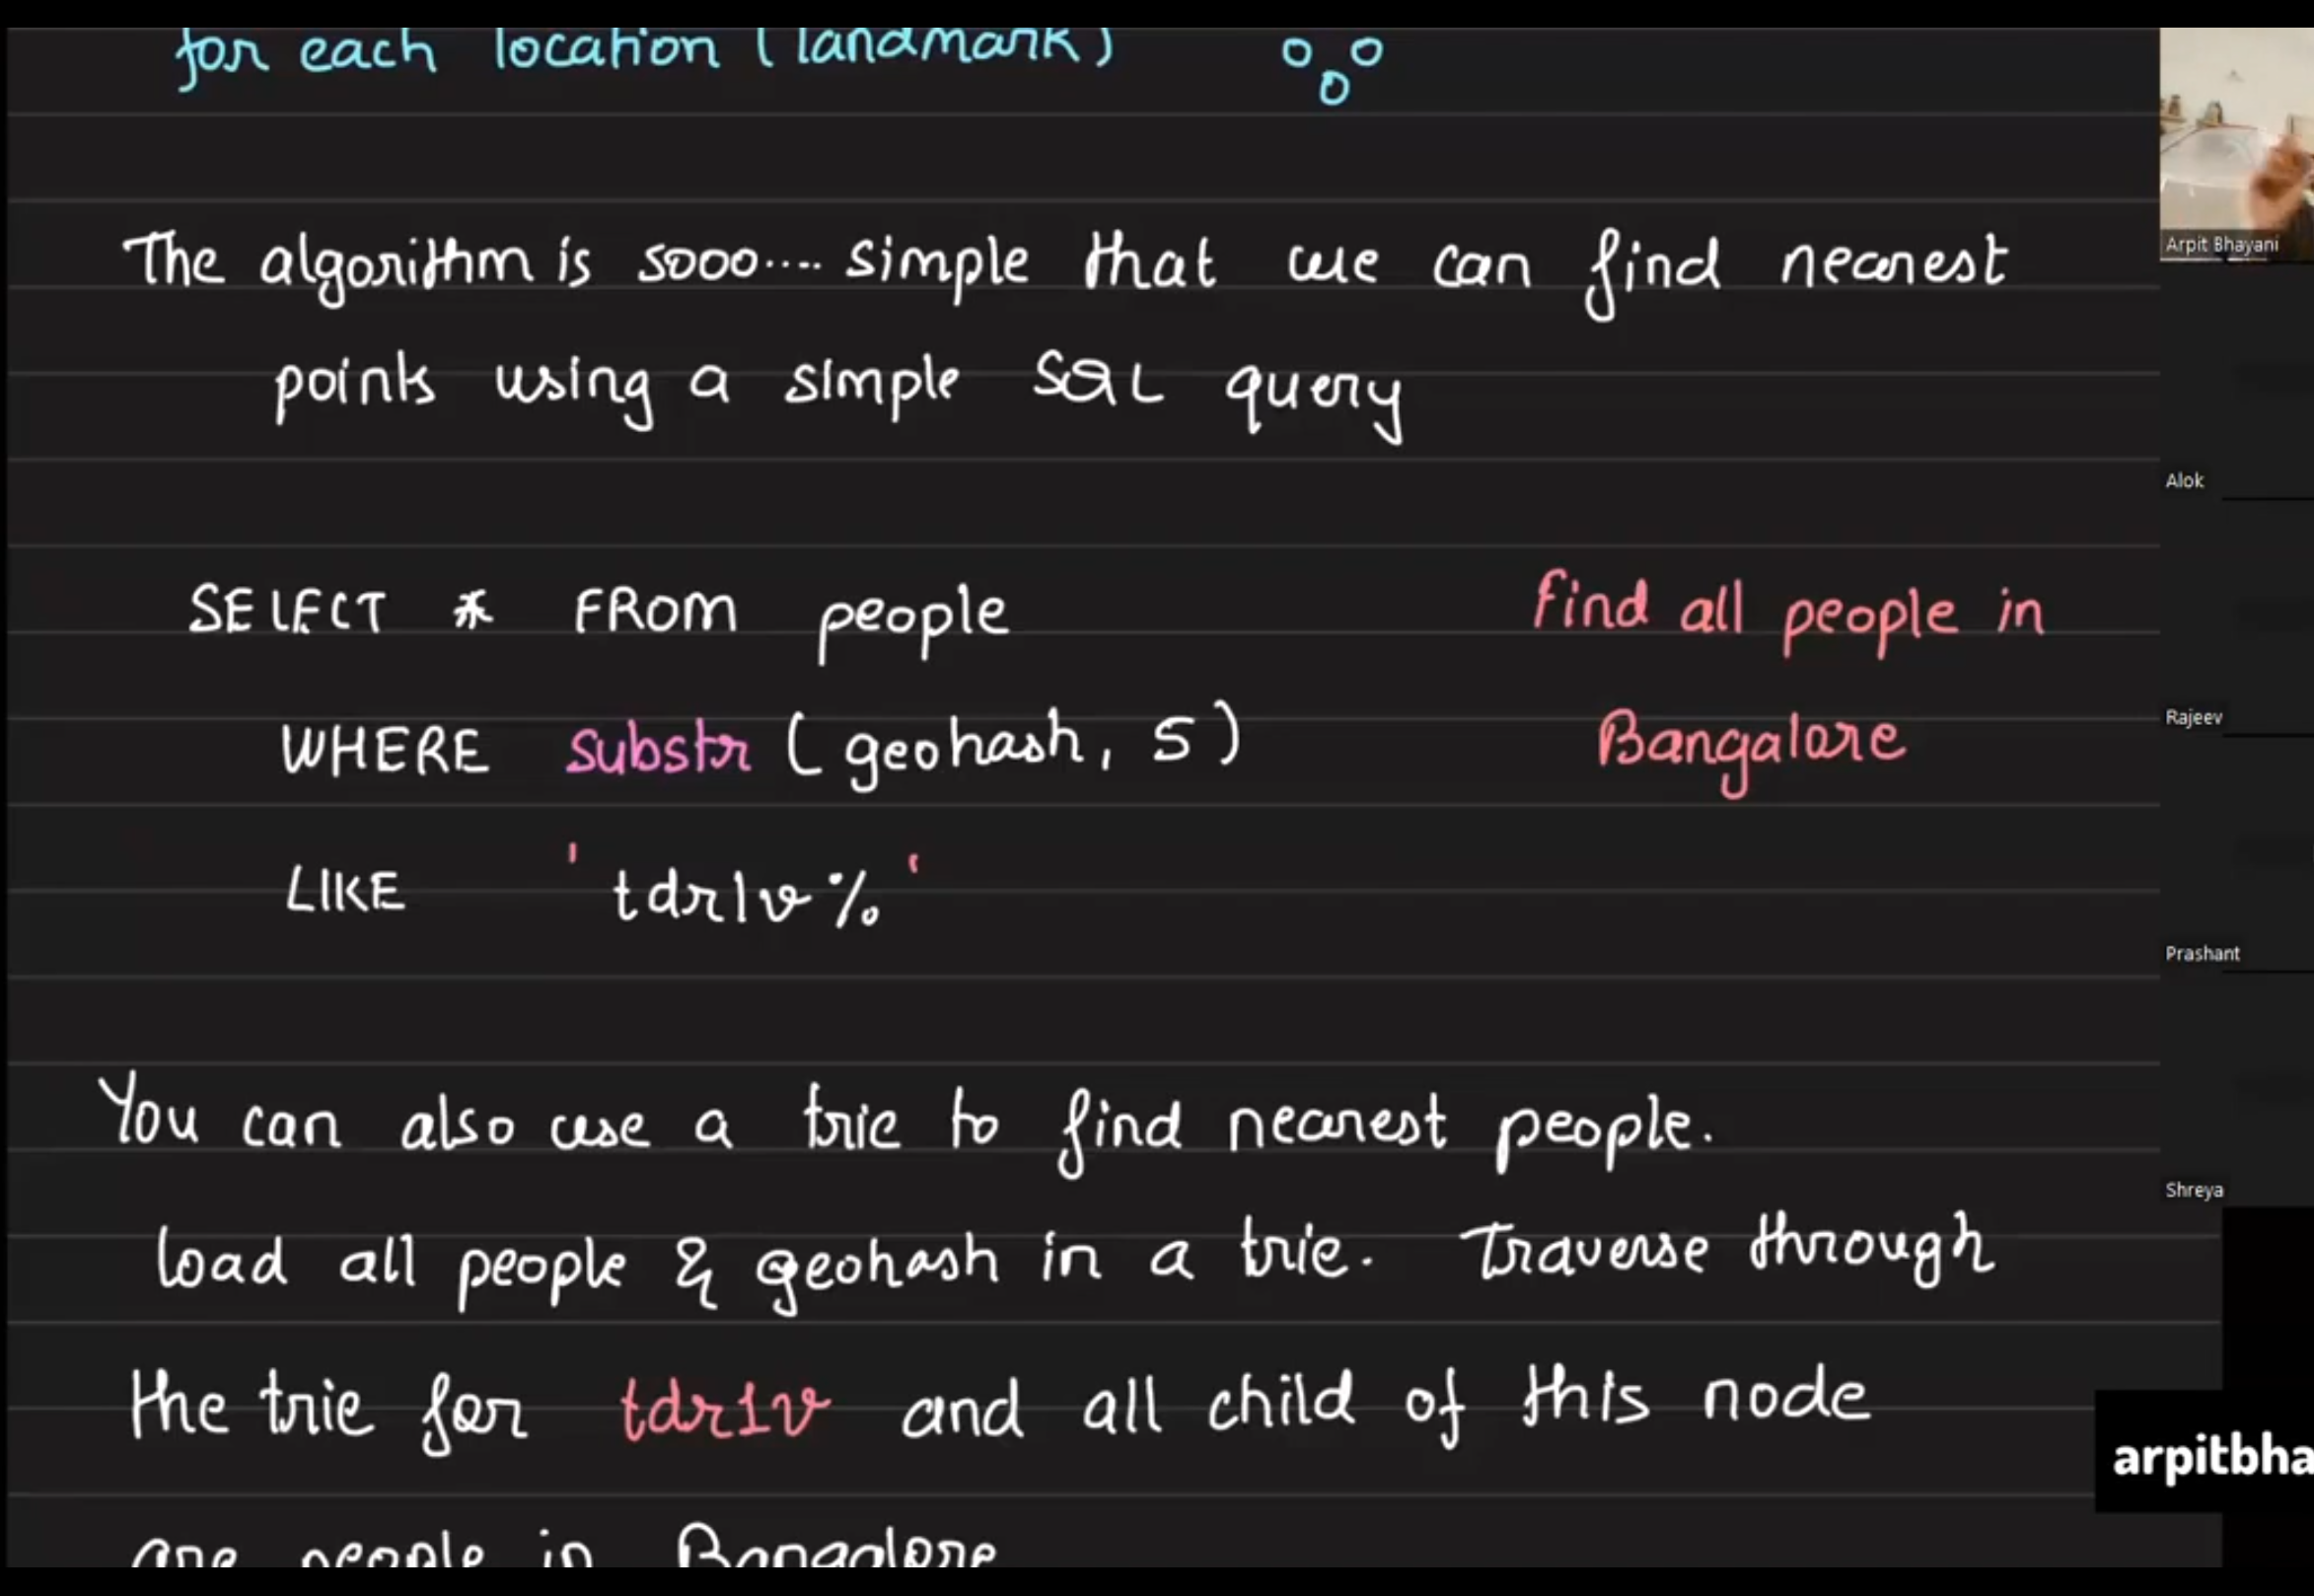 for each location (landmark)
The algorithm is sooo.... simple that we can find nearest
points using a simple SQL query
SELECT * FROM people
find all people in
WHERE substr (geohash, 5)
Bangalore
LIKE 'tdr1v%'
You can also use a trie to find nearest people.
load all people & geohash in a trie. Traverse through
the trie for tdr1v and all child of this node
are people in Bangalore
Arpit Bhayani
Alok
Rajeev
Prashant
Shreya
arpitbha